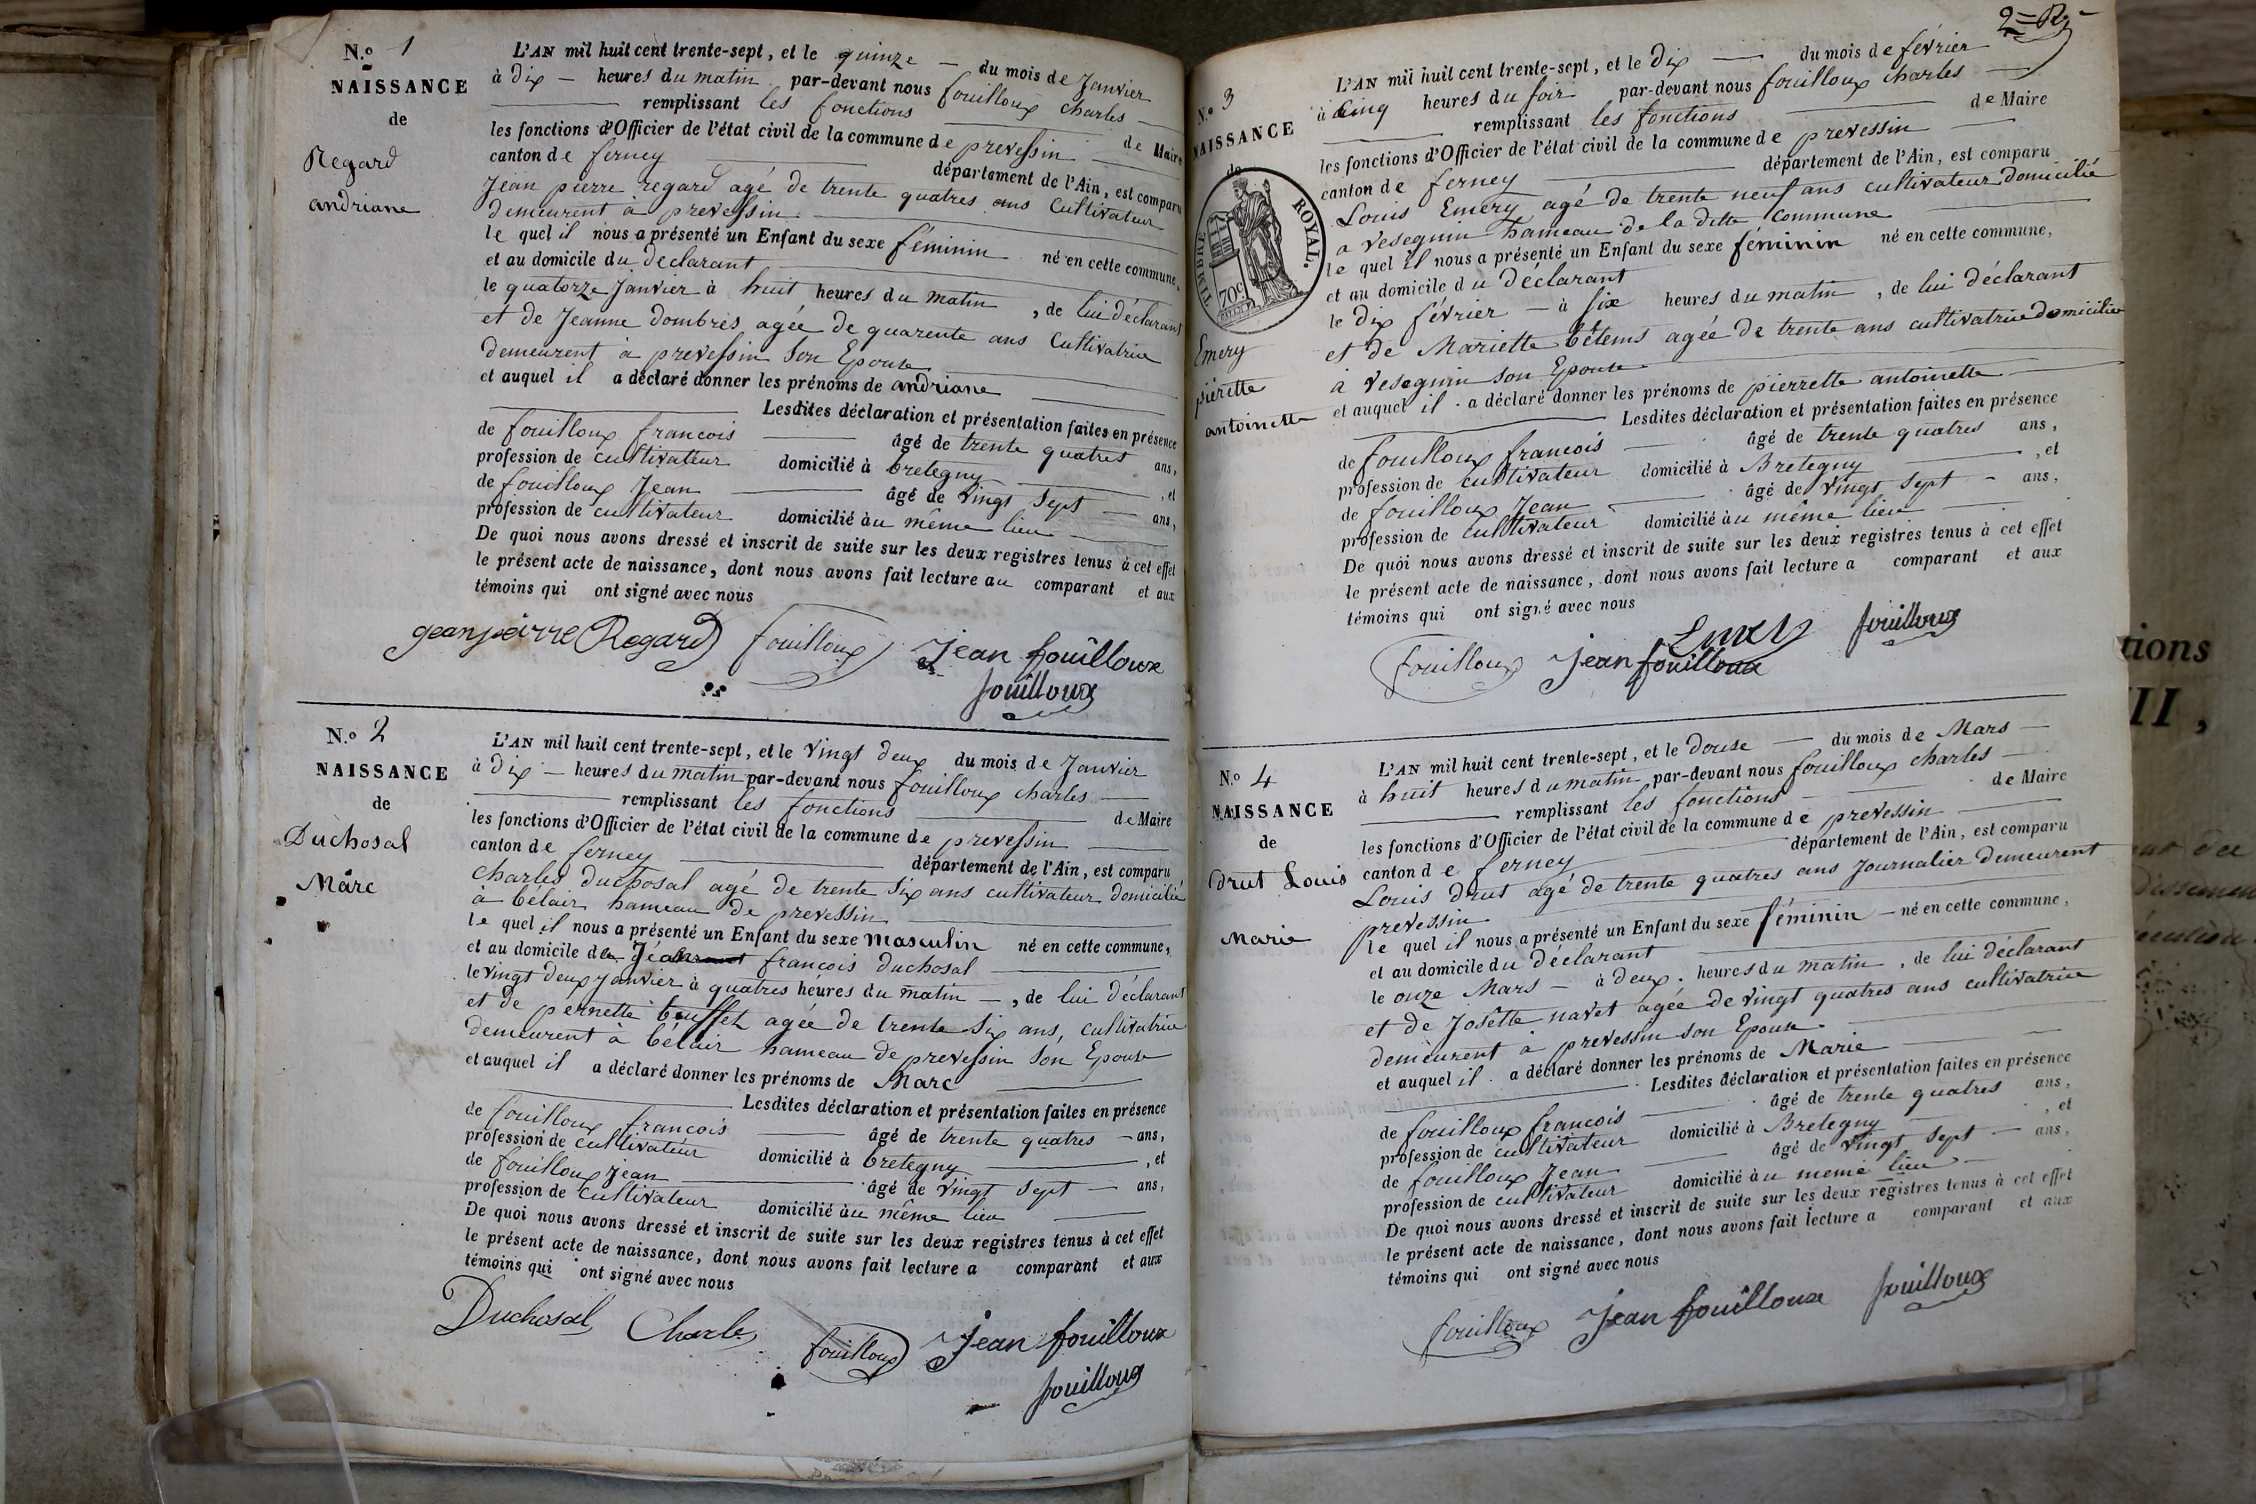 N.o 1
NAISSANCE
de
Regard
andriane
L'AN mil huit cent trente-sept, et le quinze — du mois de Janvier
à Dix — heures du matin par-devant nous fouilloux charles —
remplissant les fonctions de Maire
les fonctions d'Officier de l'état civil de la commune de prevessin
canton de ferney département de l'Ain, est comparu
Jean pierre regard agé de trente quatres ans Cultivateur
demeurent à prevessin
le quel il nous a présenté un Enfant du sexe féminin né en cette commune,
et au domicile du declarant
le quatorze Janvier à huit heures du matin, de lui déclarant
et de Jeanne dombres agée de quarente ans Cultivatrice
demeurent à prevessin Son Epouse
et auquel il a déclaré donner les prénoms de andriane
Lesdites déclaration et présentation faites en présence
de fouilloux francois âgé de trente quatres ans,
profession de cultivateur domicilié à bretegny, et
de fouilloux Jean âgé de vingt Sept — ans,
profession de cultivateur domicilié àu même lieu
De quoi nous avons dressé et inscrit de suite sur les deux registres tenus à cet effet
le présent acte de naissance, dont nous avons fait lecture au comparant et aux
témoins qui ont signé avec nous
jeanpeirre Regard fouilloux Jean fouilloux
fouilloux
N.o 2
NAISSANCE
de
Duchosal
Marc
L'AN mil huit cent trente-sept, et le vingt deux du mois de Janvier
à Dix — heures du matin par-devant nous fouilloux charles —
remplissant les fonctions de Maire
les fonctions d'Officier de l'état civil de la commune de prevessin
canton de ferney département de l'Ain, est comparu
Charles duchosal agé de trente Six ans cultivateur domicilié
à bélair hameau de prevessin
le quel il nous a présenté un Enfant du sexe masculin né en cette commune,
et au domicile de françois duchosal
le vingt deux janvier à quatres heures du matin —, de lui déclarant
et de pernette bouffet agée de trente Six ans, cultivatrice
demeurent à bélair hameau de prevessin Son Epouse
et auquel il a déclaré donner les prénoms de Marc
Lesdites déclaration et présentation faites en présence
de fouilloux francois âgé de trente quatres — ans,
profession de cultivateur domicilié à bretegny, et
de fouilloux jean âgé de vingt Sept — ans,
profession de cultivateur domicilié àu même lieu
De quoi nous avons dressé et inscrit de suite sur les deux registres tenus à cet effet
le présent acte de naissance, dont nous avons fait lecture a comparant et aux
témoins qui ont signé avec nous
Duchosal Charles fouilloux Jean fouilloux
fouilloux
N.o 3
NAISSANCE
de
TIMBRE ROYAL.
70c
Emery
pierette
antoinette
L'AN mil huit cent trente-sept, et le Dix — du mois de février
à Cinq heures du soir par-devant nous fouilloux charles —
remplissant les fonctions de Maire
les fonctions d'Officier de l'état civil de la commune de prevessin
canton de ferney département de l'Ain, est comparu
Louis Emery agé de trente neuf ans cultivateur domicilié
a vesegnin hameau de la ditte commune
le quel il nous a présenté un Enfant du sexe féminin né en cette commune,
et au domicile du déclarant
le dix février — à six heures du matin, de lui déclarant
et de Mariette bétems agée de trente ans cultivatrice domicilieé
à vesegnin son Epouse
et auquel il a déclaré donner les prénoms de pierrette antoinette
Lesdites déclaration et présentation faites en présence
de fouilloux francois âgé de trente quatres ans,
profession de cultivateur domicilié à Bretegny, et
de fouilloux Jean âgé de vingt Sept — ans,
profession de cultivateur domicilié àu même lieu
De quoi nous avons dressé et inscrit de suite sur les deux registres tenus à cet effet
le présent acte de naissance, dont nous avons fait lecture a comparant et aux
témoins qui ont signé avec nous
Emery fouilloux
fouilloux Jean fouilloux
N.o 4
NAISSANCE
de
Drut Louis
Marie
L'AN mil huit cent trente-sept, et le Douse — du mois de Mars —
à huit heures du matin, par-devant nous fouilloux charles —
remplissant les fonctions de Maire
les fonctions d'Officier de l'état civil de la commune de prevessin
canton de ferney département de l'Ain, est comparu
Louis drut agé de trente quatres ans Journalier demeurent
prevessin
le quel il nous a présenté un Enfant du sexe féminin — né en cette commune,
et au domicile du déclarant
le onze Mars — à deux heures du matin, de lui déclarant
et de Josette navet agée de vingt quatres ans cultivatrice
demeurent à prevessin son Epouse
et auquel il a déclaré donner les prénoms de Marie
Lesdites déclaration et présentation faites en présence
de fouilloux francois âgé de trente quatres ans,
profession de cultivateur domicilié à Bretegny, et
de fouilloux Jean âgé de vingt Sept — ans,
profession de cultivateur domicilié àu meme lieu
De quoi nous avons dressé et inscrit de suite sur les deux registres tenus à cet effet
le présent acte de naissance, dont nous avons fait lecture a comparant et aux
témoins qui ont signé avec nous
fouilloux Jean fouilloux fouilloux
tions
II,